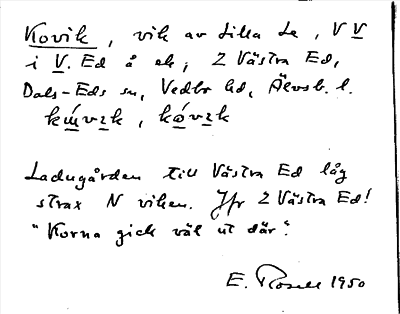 Kovik, vik av Lilla Le, V V
i V. Ed å ek; 2 Västra Ed,
Dals-Eds sn, Vedbo hd, Älvsb. l.
Ladugården till Västra Ed låg
strax N viken. Jfr 2 Västra Ed!
"Korna gick väl ut där".
E. Rosell 1950